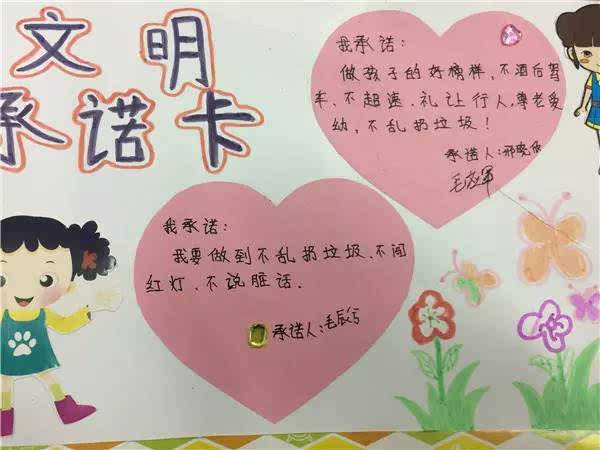 文明
承诺卡
我承诺：
做孩子的好榜样，不酒后驾
车、不超速、礼让行人，尊老爱
幼，不乱扔垃圾！
承诺人：邢晓
我承诺：
我要做到不乱扔垃圾、不闯
红灯、不说脏话．
承诺人：毛辰